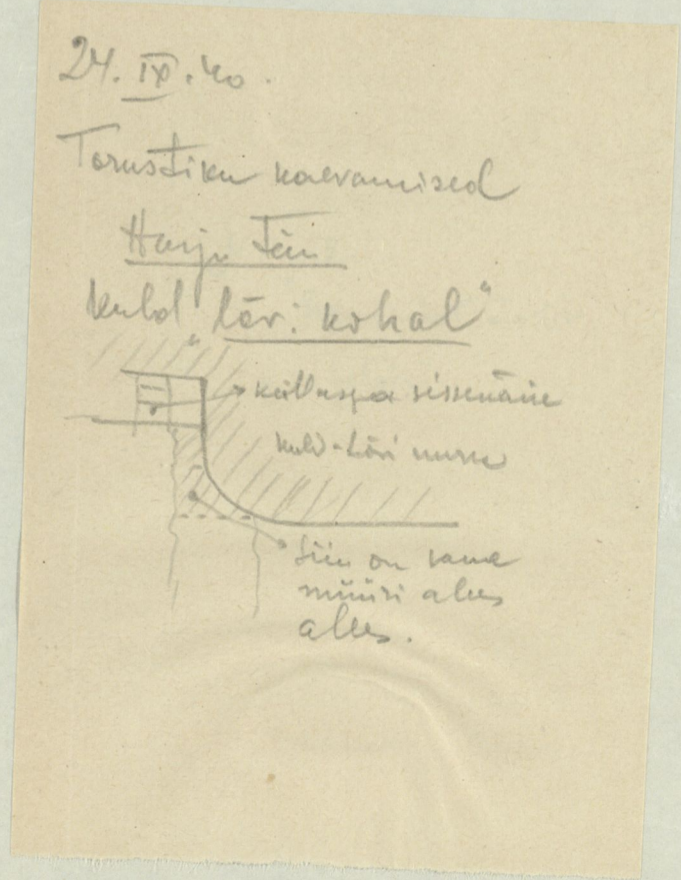 24. IX. 40.
Torustiku kaevamised
Harju tän
Kuld „lõvi kohal“
sissekäik
Kuld-Lõvi
Siin on vana
müüri alus
alles.